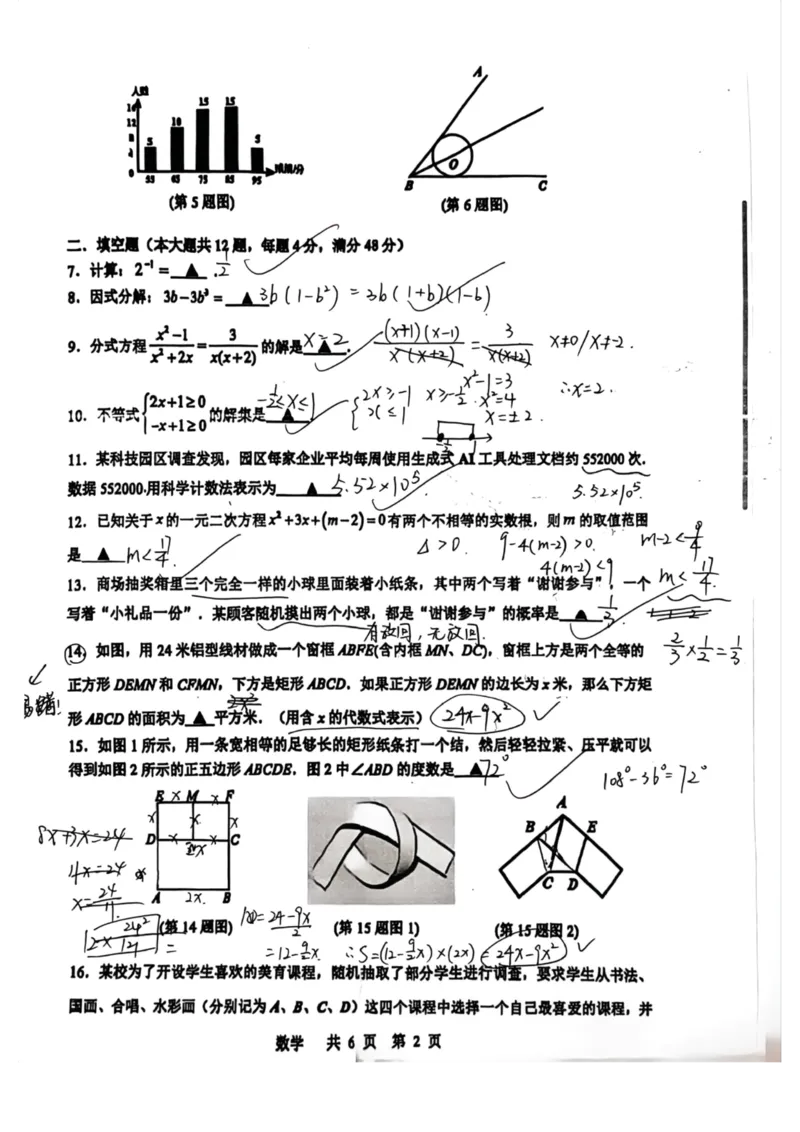 人数
16
12
8
4
0
5
10
15
15
5
55 65 75 85 95
成绩/分
(第 5 题图)
A
O
B
C
(第 6 题图)
二、填空题（本大题共 12 题，每题 4 分，满分 48 分）
7．计算：2⁻¹ = ▲ . 1/2
8．因式分解：3b−3b³ = ▲ 3b(1-b²) = 3b(1+b)(1-b)
9．分式方程 (x²−1)/(x²+2x) = 3/(x(x+2)) 的解是 ▲ . x=2
(x+1)(x-1)/x(x+2) = 3/x(x+2) x≠0/x≠-2.
x²-1=3
x²=4
x=±2.
∴x=2.
10．不等式 {2x+1≥0 −x+1≥0 的解集是 ▲ -1/2≤x≤1
{2x≥-1 x≤1 x≥-1/2.
-1/2 1
11．某科技园区调查发现，园区每家企业平均每周使用生成式 AI 工具处理文档约 552000 次.
数据 552000 用科学计数法表示为 ▲ 5.52×10⁵
5.52×10⁵.
12．已知关于 x 的一元二次方程 x²+3x+(m−2)=0 有两个不相等的实数根，则 m 的取值范围
是 ▲ m<17/4.
Δ>0. 9-4(m-2)>0. m-2<9/4
4(m-2)<9
m<17/4.
13．商场抽奖箱里三个完全一样的小球里面装着小纸条，其中两个写着“谢谢参与”，一个
写着“小礼品一份”．某顾客随机摸出两个小球，都是“谢谢参与”的概率是 ▲ 1/3
有放回，无放回.
2/3×1/2=1/3
14．如图，用 24 米铝型线材做成一个窗框 ABFE(含内框 MN、DC)，窗框上方是两个全等的
正方形 DEMN 和 CFMN，下方是矩形 ABCD．如果正方形 DEMN 的边长为 x 米，那么下方矩
易错!
形 ABCD 的面积为 ▲ 平方米．（用含 x 的代数式表示） 24x-9x²
15．如图 1 所示，用一条宽相等的足够长的矩形纸条打一个结，然后轻轻拉紧、压平就可以
得到如图 2 所示的正五边形 ABCDE．图 2 中∠ABD 的度数是 ▲ 72°
108°-36°=72°
E x M x F
x x x
D x x C
2x
A 2x B
8x+3x=24
x=24/11.
A
B E
C D
(第 14 题图)
(第 15 题图 1)
(第 15 题图 2)
AD=(24-9x)/2
=12-9/2x. ∴S=(12-9/2x)×(2x)=24x-9x²
16．某校为了开设学生喜欢的美育课程，随机抽取了部分学生进行调查，要求学生从书法、
国画、合唱、水彩画（分别记为 A、B、C、D）这四个课程中选择一个自己最喜爱的课程，并
数学 共 6 页 第 2 页